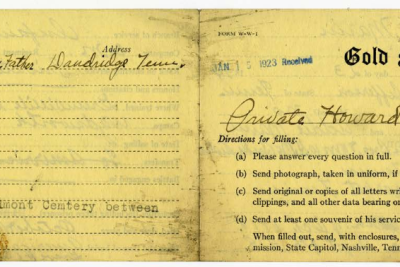 Address
Father Dandridge Tenn.
mont Cemtery between
FORM W-W-1
JAN 15 1923 Received
Gold
Private Howard
Directions for filling:
(a) Please answer every question in full.
(b) Send photograph, taken in uniform, if
(c) Send original or copies of all letters wri
clippings, and all other data bearing on
(d) Send at least one souvenir of his servic
When filled out, send, with enclosures,
mission, State Capitol, Nashville, Tenn